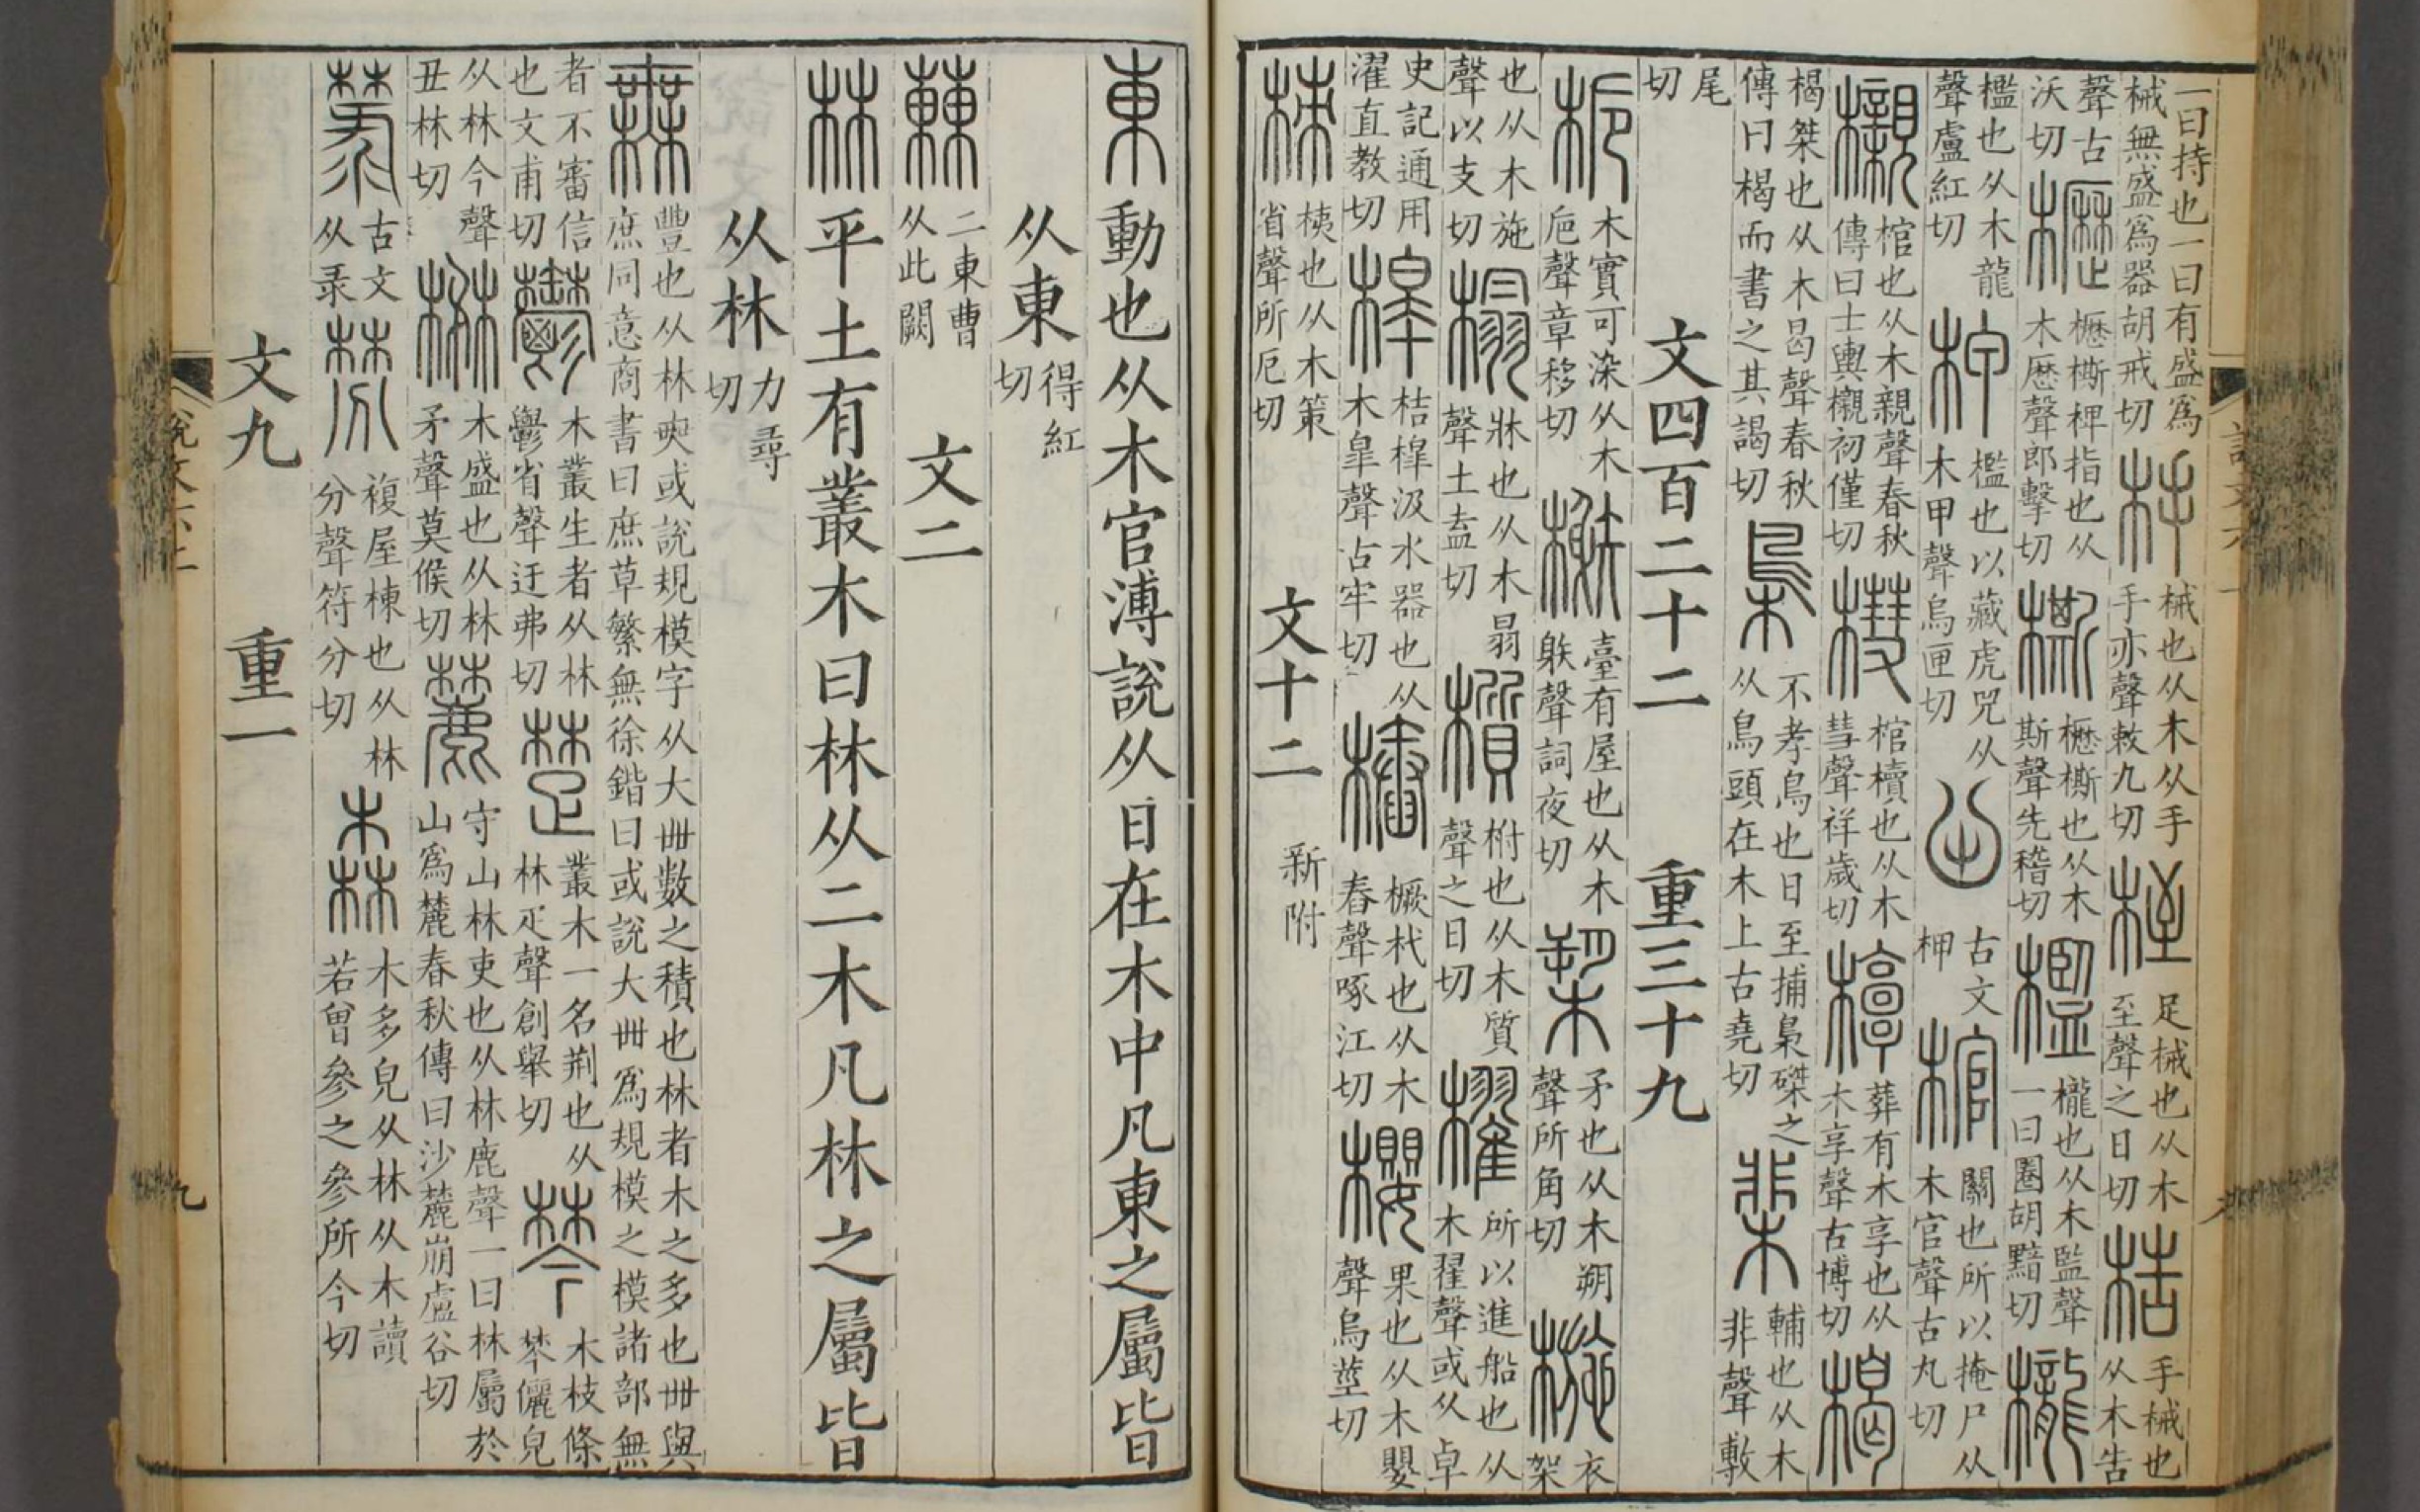 一曰持也一曰有盛爲械無盛爲器胡戒切 杽 械也从木从手手亦聲敕九切 桎 足械也从木至聲之日切 梏 手械也从木告
聲古沃切 櫪 櫪㯕椑指也从木歷聲郎擊切 㯕 櫪㯕也从木斯聲先稽切 檻 櫳也从木監聲一曰圈胡黯切 櫳
檻也从木龍聲盧紅切 柙 檻也以藏虎兕从木甲聲烏匣切 𠙹 古文柙 棺 關也所以掩尸从木官聲古丸切
櫬 棺也从木親聲春秋傳曰士輿櫬初僅切 槥 棺櫝也从木彗聲祥歲切 椁 葬有木享也从木享聲古博切 楬
楬桀也从木曷聲春秋傳曰楬而書之其謁切 梟 不孝鳥也日至捕梟磔之从鳥頭在木上古堯切 棐 輔也从木非聲敷
尾切 文四百二十二 重三十九
梔 木實可染从木巵聲章移切 榭 臺有屋也从木躲聲詞夜切 槊 矛也从木朔聲所角切 椸 衣架
也从木施聲以支切 榻 牀也从木㬼聲土盍切 櫍 柎也从木質聲之日切 櫂 所以進船也从木翟聲或从卓
史記通用濯直教切 槔 桔槔汲水器也从木皋聲古牢切 樁 橛杙也从木舂聲啄江切 櫻 果也从木嬰聲烏莖切
栜 桋也从木策省聲所厄切 文十二 新附
東 動也从木官溥說从日在木中凡東之屬皆
从東 得紅切
𣡌 二東曹从此闕 文二
林 平土有叢木曰林从二木凡林之屬皆
从林 力尋切
𣞤 豐也从林奭或說規模字从大卌數之積也林者木之多也卌與庶同意商書曰庶草繁無徐鍇曰或說大卌爲規模之模諸部無
者不審信也文甫切 鬱 木叢生者从林鬱省聲迂弗切 楚 叢木一名荆也从林疋聲創舉切 棽 木枝條棽儷皃
从林今聲丑林切 楙 木盛也从林矛聲莫候切 麓 守山林吏也从林鹿聲一曰林屬於山爲麓春秋傳曰沙麓崩盧谷切
䔁 古文从录 棼 複屋棟也从林分聲符分切 森 木多皃从林从木讀若曾參之參所今切
文九 重一
說文六上
九